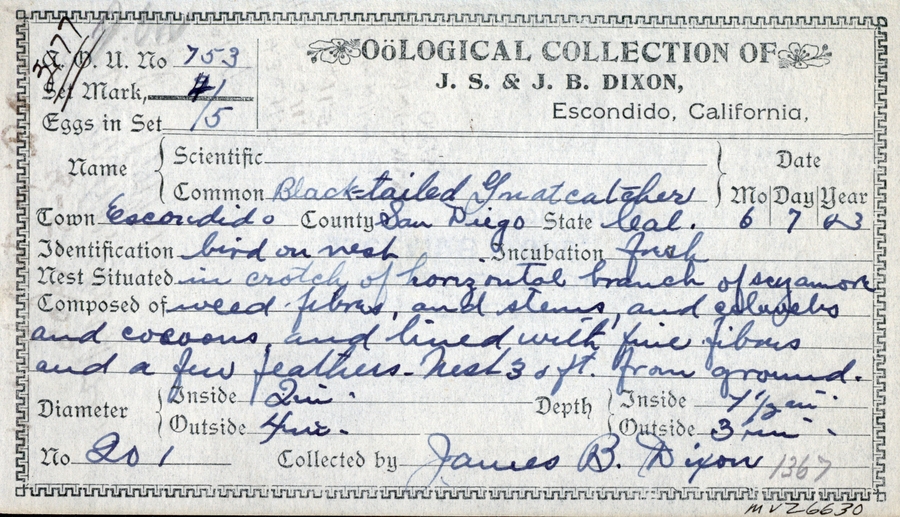 3077
A. O. U. No 753
Set Mark, 1
Eggs in Set 1/5
OöLOGICAL COLLECTION OF
J. S. & J. B. DIXON,
Escondido, California,
Name Scientific
Common Black-tailed Gnatcatcher
Date
Mo Day Year
6 7 23
Town Escondido County San Diego State Cal.
Identification bird on nest Incubation Fresh
Nest Situated in crotch of horizontal branch of sycamore
Composed of weed fibres, and stems, and cobwebs
and cocoons, and lined with fine fibres
and a few feathers - Nest 30 ft. from ground.
Diameter Inside 2 in. Depth Inside 1 1/2 in.
Outside 4 in. Outside 3 in.
No 201 Collected by James B. Dixon 1367
MVZ6630